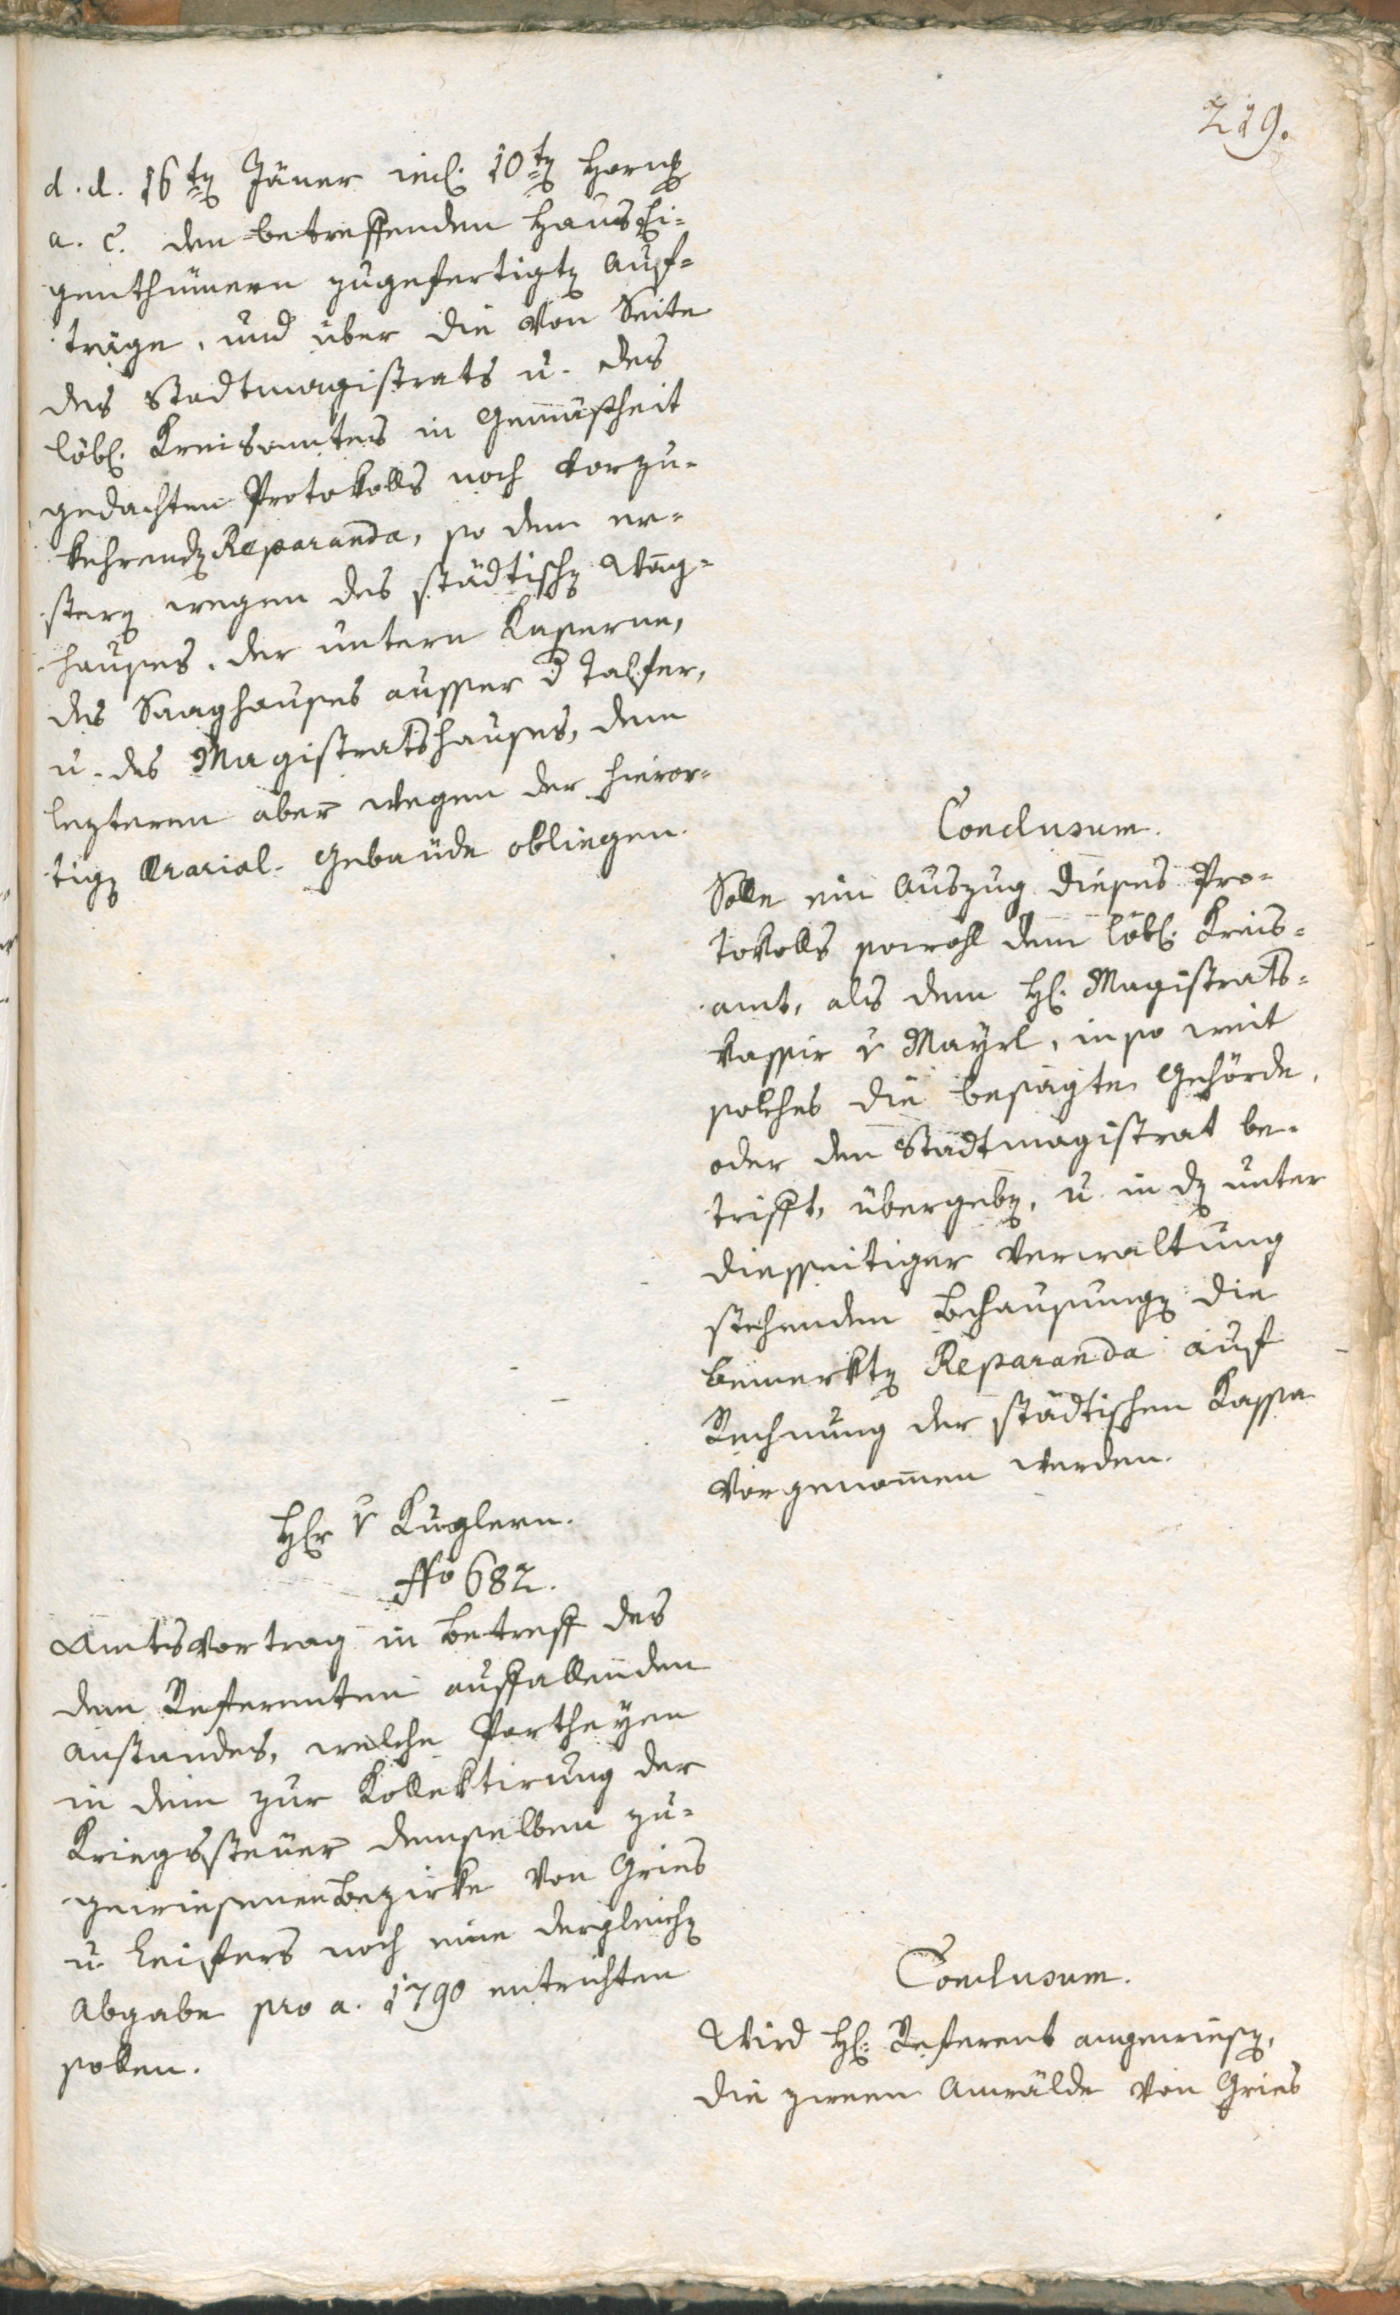 219.
d. d. 16ten Jäner incl. 10ten Hornng
a. c. den betreffenden Hausei-
genthümern zugefertigten Auf-
träge, und über die von Seite
des Stadtmagistrats u. des
löbl. Kreisamtes in Gemäßheit
gedachten Protokolls noch vorzu-
kehrenden Reparanda, so dem er-
stern wegen des städtischen Wag-
hauses, der untern Kaserne,
des Saaghauses ausser d Talfer,
u. des Magistratshauses, dem
lezteren aber wegen der hieror-
tigen Ararial-Gebäude obliegen.
Conclusum.
Solle ein Auszug dieses Pro-
tokolls sowohl dem löbl. Kreis-
amt, als dem H. Magistrats-
kassir v Mayrl, in so weit
solches die besagte Gehörde,
oder den Stadtmagistrat be-
trifft, übergeben, u. in den unter
diesseitiger Verwaltung
stehenden Behausungen die
bemerkten Reparanda auf
Rechnung der städtischen Kassa
vorgenommen werden.
Hr v Kuglern.
No 682.
Amtsvortrag in Betreff des
dem Referenten auffallenden
Anstandes, welche Partheyen
in dem zur Kollektirung der
Kriegssteuer demselben zu-
gewiesenen Bezirke von Gries
u. Leifers noch eine dergleichen
Abgabe pro a. 1790 entrichten
sollen.
Conclusum.
Wird H. Referent angewiesen,
die zween Anwälde von Gries